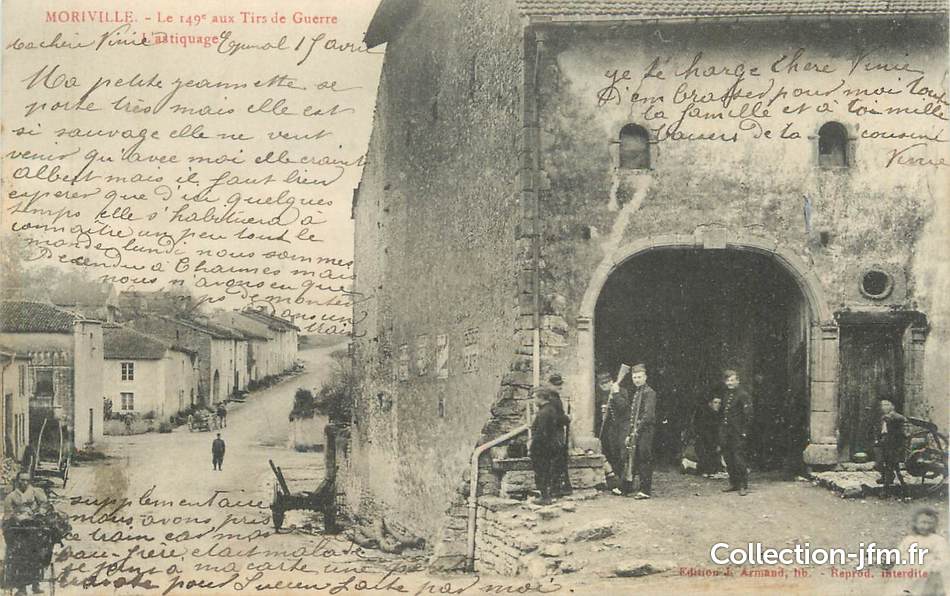 MORIVILLE. - Le 149e aux Tirs de Guerre
L'astiquage
Ma chère Vinie Epinal 15 avril
Ma petite jeannette se
porte très mais elle est
si sauvage elle ne veut
venir qu'avec moi elle craint
Albert mais il faut bien
espérer que d'ici quelques
temps elle s'habituera à
connaitre un peu tout le
monde lundi nous sommes
descendu à Charmes mais
nous n'avons eu que
temps de monter
dans un
train
supplementaire
nous avons pris
ce train car mon
beau-frère était malade
je te charge chère Vinie
d'embrasser pour moi toute
la famille et à toi mille
baisers de la cousine
Vinie
ma carte une
pour Lucien
par moi.
Collection-jfm.fr
Edition J. Armand, lib. - Reprod. interdite